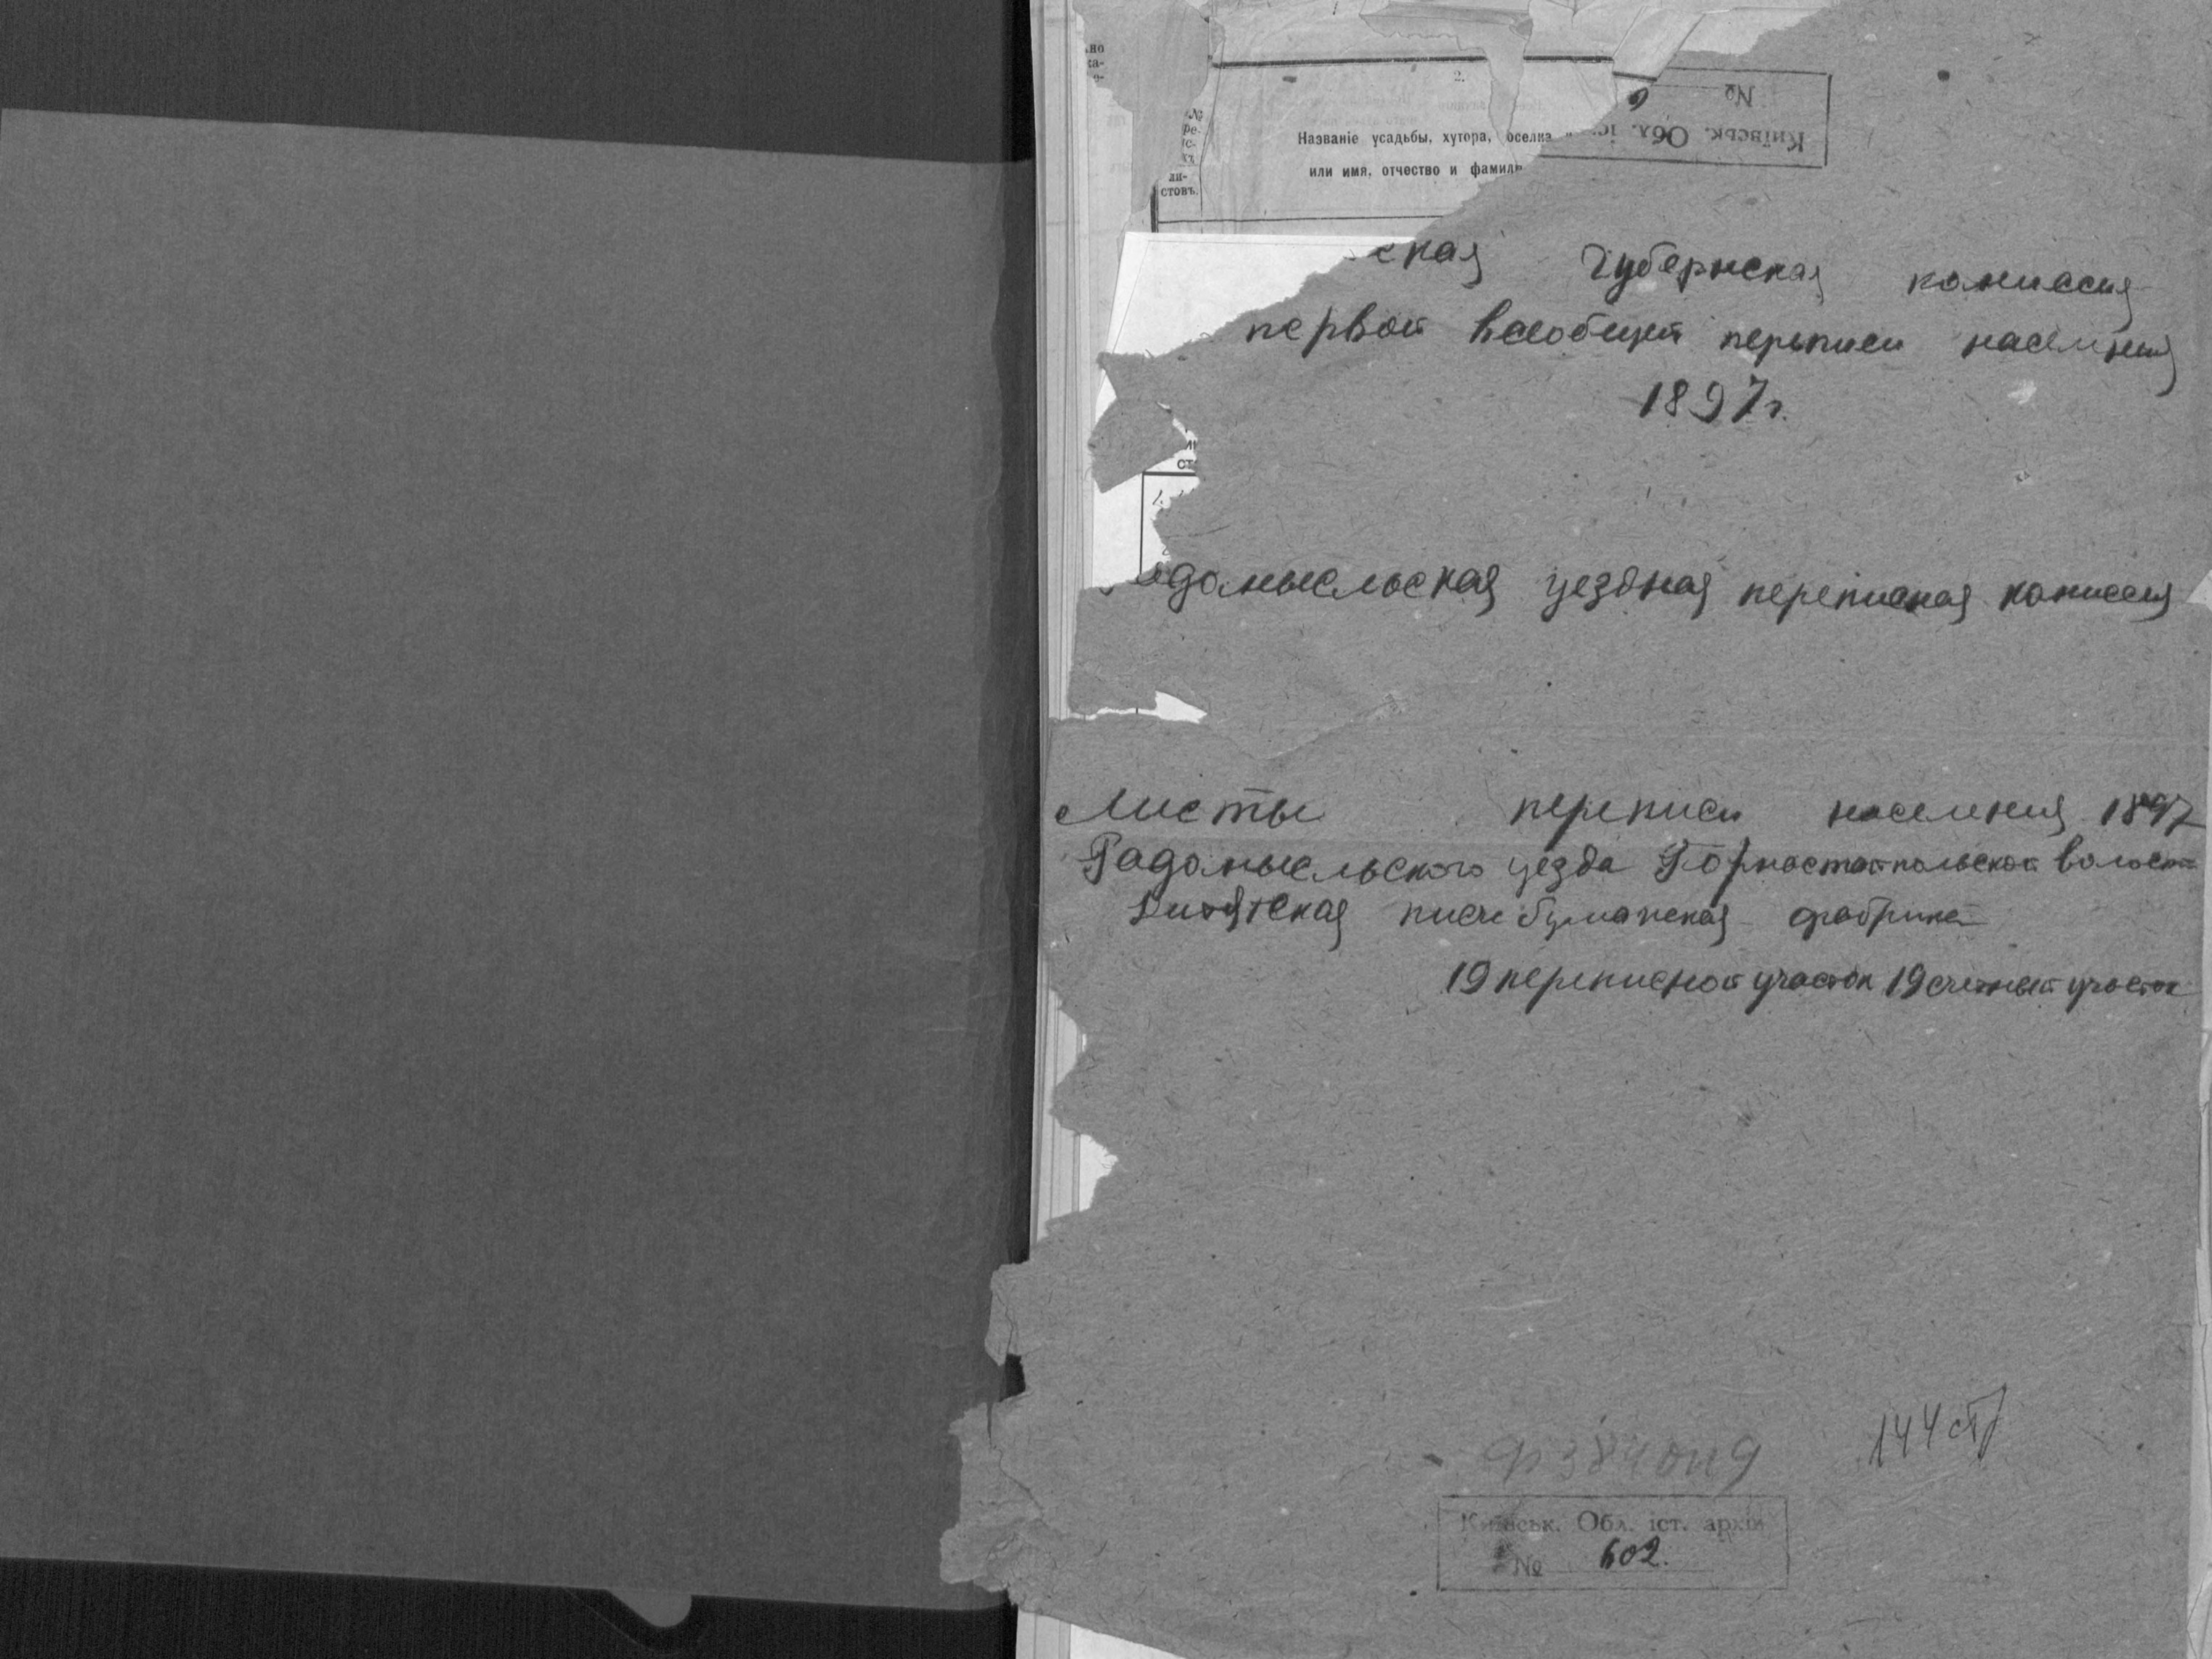 но
ка-
2.
№
ре-
ис-
ли-
стовъ.
Названіе усадьбы, хутора, оселка
или имя, отчество и фамил
№
Київськ. Обл. іс
ская Губернская комиссия
первой всеобщей переписи населения
1897г.
адомысльская уездная переписная комиссия
Листы переписи населения 1897
Радомысльского уезда Горностайпольской волости
Дитятская писчебумажная фабрика
19 переписной участок 19 счетный участок
144 ст
ф 384 оп 9
Київськ. Обл. іст. архів
№ 602.